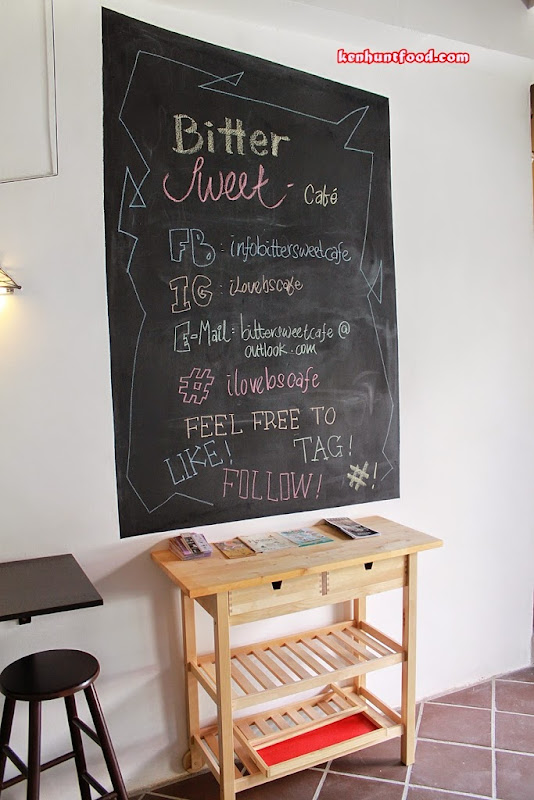 kenhuntfood.com
Bitter
Sweet - Café
FB. : infobittersweetcafe
IG : ilovebscafe
E-Mail : bittersweetcafe @
outlook.com
# ilovebscafe
FEEL FREE TO
LIKE! TAG!
FOLLOW! #!